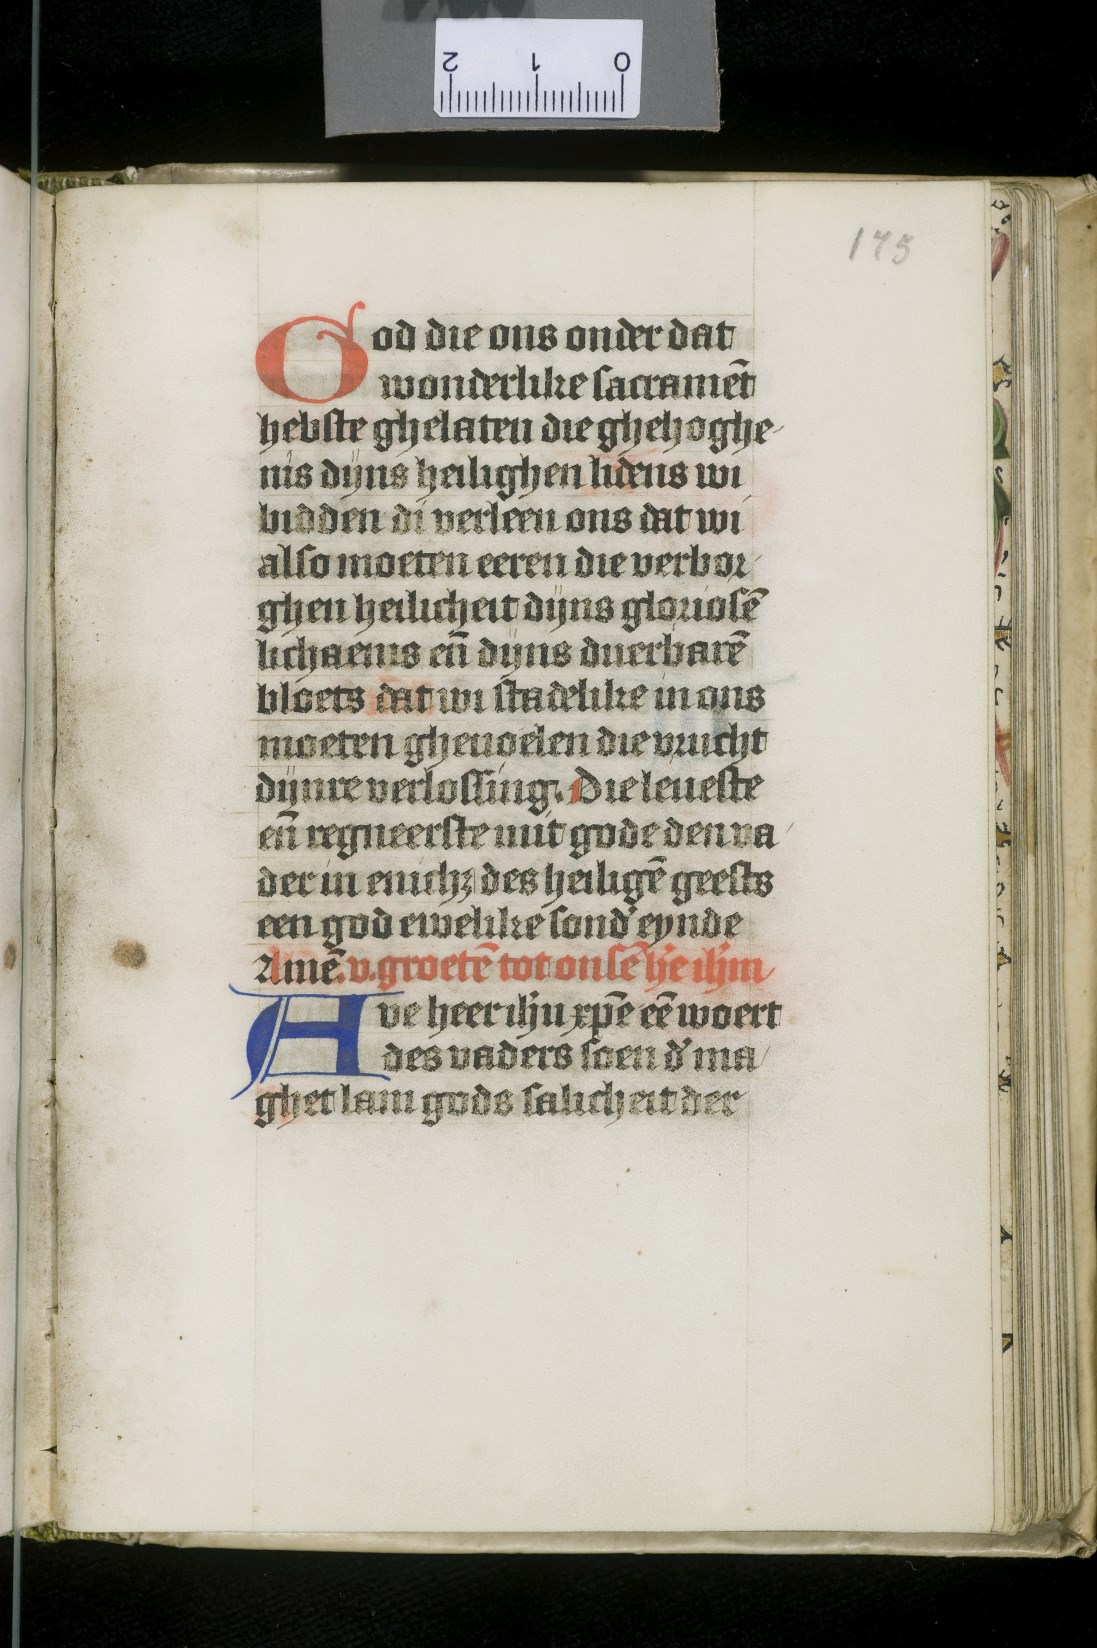 175
God die ons onder dat
wonderlike sacramēt
hebste ghelaten die ghehoghe-
nis dijns heilighen lidens wi
bidden di verleen ons dat wi
also moeten eeren die verbor-
ghen heilicheit dijns gloriosē
lichaems eñ dijns duerbarē
bloets dat wi stadelike in ons
moeten gheuoelen die vrucht
dijnre verlossing. Die leueste
eñ regneerste mit gode den va-
der in enichz des heiligē geests
een god ewelike sond' eynde
Amē. v. groetē tot onsē h'e ih'm
Ave heer ih'u xp̄e eē woert
des vaders soen d' ma-
ghet lam gods salicheit der
2 1 0